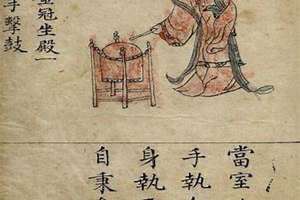 冠坐殿一
手擊鼓
當室
手執
身執
自秉